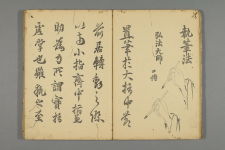 執筆法
弘法大師
一傳
置筆於大指中節
前居轉動之際
以頭小指齊中指
助為力所謂實指
虚掌也